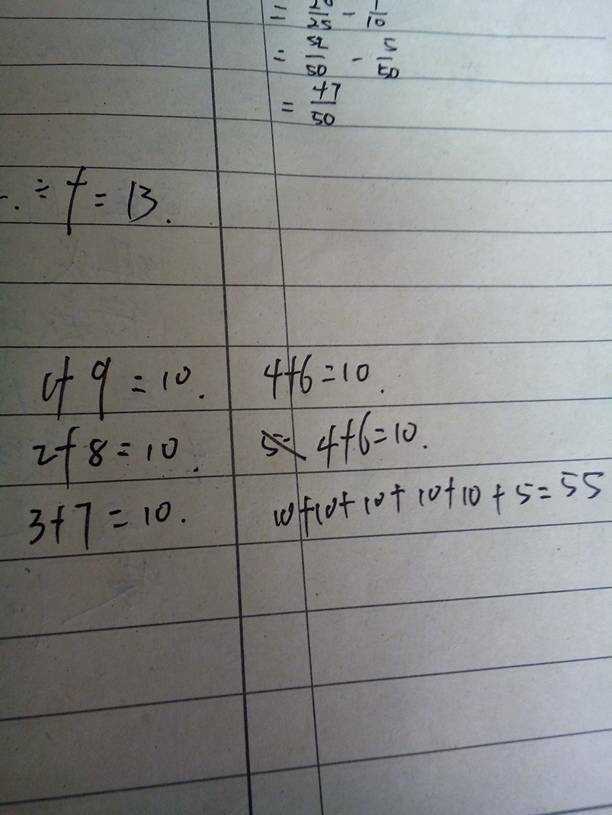 = 26/25 - 1/10
= 52/50 - 5/50
= 47/50
÷ 7 = 13.
1+9=10.
2+8=10.
3+7=10.
4+6=10.
4+6=10.
10+10+10+10+10+5=55